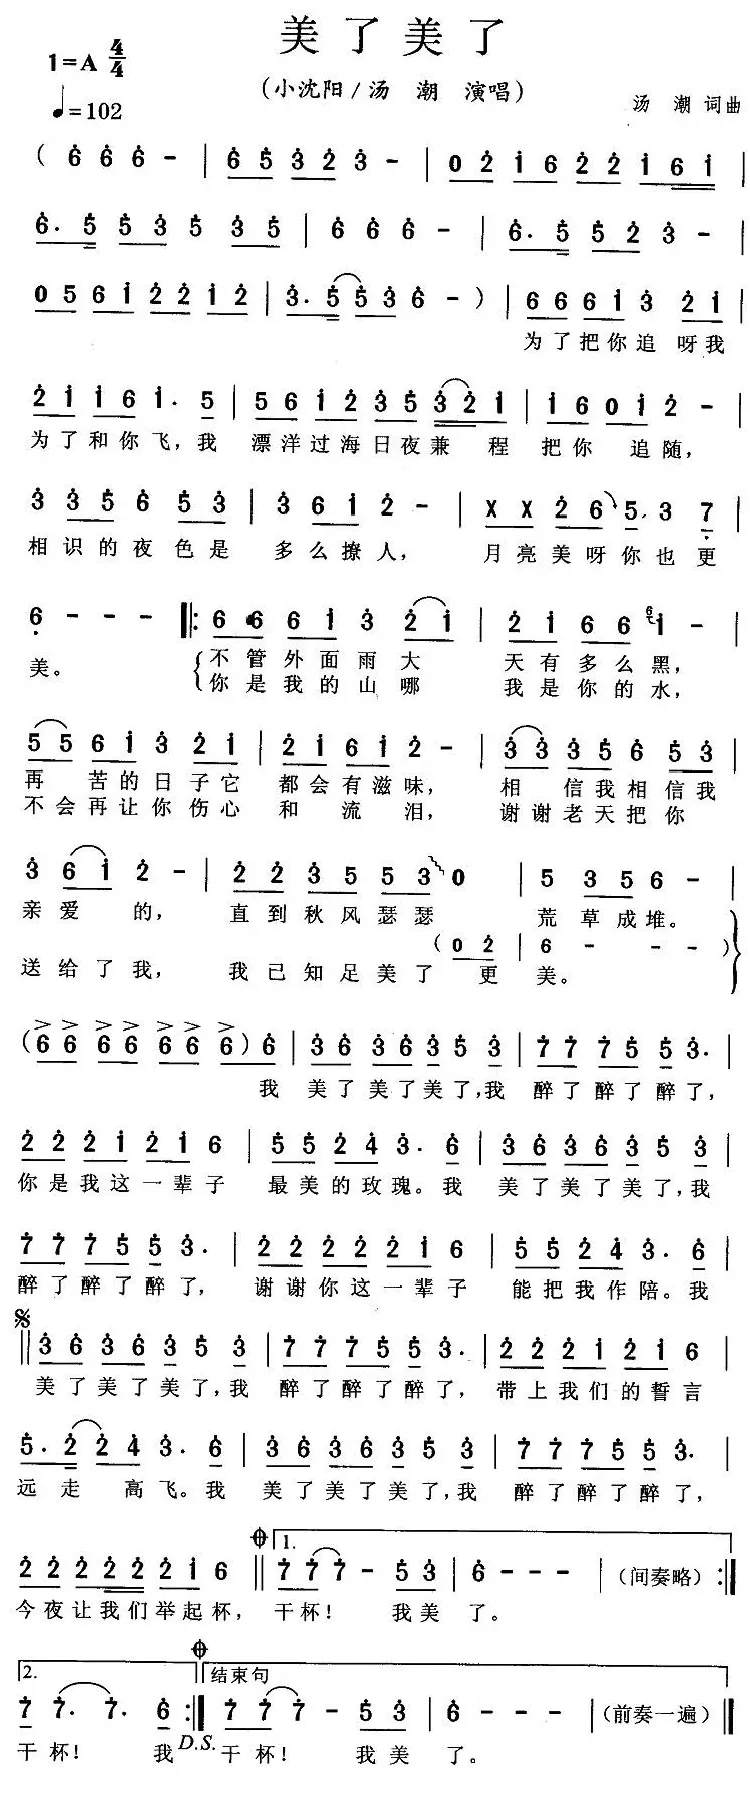 美了美了
1=A 4/4
（小沈阳/汤 潮 演唱）
♩=102
汤 潮 词曲
( 6 6 6 - | 6 5 3 2 3 - | 0 2 1 6 2 2 1 6 1 |
6. 5 5 3 5 3 5 | 6 6 6 - | 6. 5 5 2 3 - |
0 5 6 1 2 2 1 2 | 3. 5 5 3 6 - ) | 6 6 6 1 3 2 1 |
为了把你追 呀我
2 1 1 6 1. 5 | 5 6 1 2 3 5 3 2 1 | 1 6 0 1 2 - |
为了和你飞，我 漂洋过海日夜兼 程 把你 追随，
3 3 5 6 5 3 | 3 6 1 2 - | X X 2 6 5, 3 7 |
相识的夜色是 多么撩人， 月亮美呀你也更
6 - - - ‖: 6 6 6 1 3 2 1 | 2 1 6 6 6 1 - |
美。 不管外面雨大 天有多么黑，
你是我的山哪 我是你的水，
5 5 6 1 3 2 1 | 2 1 6 1 2 - | 3 3 3 5 6 5 3 |
再 苦的日子它 都会有滋味， 相 信我相信我
不会再让你伤心 和 流 泪， 谢谢老天把你
3 6 1 2 - | 2 2 3 5 5 3 0 | 5 3 5 6 - |
亲爱 的， 直到秋风瑟瑟 荒草成堆。
( 0 2 | 6 - - - )
送给了我， 我已知足美了 更 美。
( 6 6 6 6 6 6 6 ) 6 | 3 6 3 6 3 5 3 | 7 7 7 5 5 3. |
我 美了美了美了，我 醉了醉了醉了，
2 2 2 1 2 1 6 | 5 5 2 4 3. 6 | 3 6 3 6 3 5 3 |
你是我这一辈子 最美的玫瑰。我 美了美了美了，我
7 7 7 5 5 3. | 2 2 2 2 2 1 6 | 5 5 2 4 3. 6 |
醉了醉了醉了， 谢谢你这一辈子 能把我作陪。我
𝄋
‖ 3 6 3 6 3 5 3 | 7 7 7 5 5 3. | 2 2 2 1 2 1 6 |
美了美了美了，我 醉了醉了醉了， 带上我们的誓言
5. 2 2 4 3. 6 | 3 6 3 6 3 5 3 | 7 7 7 5 5 3. |
远走 高飞。我 美了美了美了，我 醉了醉了醉了，
𝄌 1.
2 2 2 2 2 2 1 6 ‖ 7 7 7 - 5 3 | 6 - - - | （间奏略） :‖
今夜让我们举起杯， 干杯！ 我美 了。
2. 𝄌 结束句
7 7. 7. 6 :‖ 7 7 7 - 5 3 | 6 - - - | （前奏一遍） ‖
干杯！ 我 D.S. 干杯！ 我美 了。